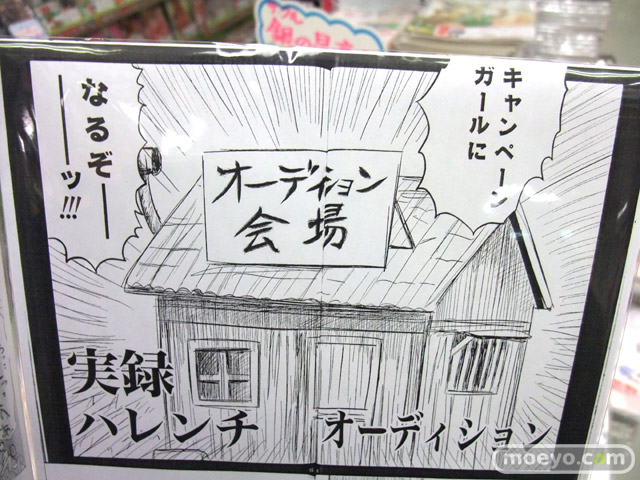 キャンペーン
ガールに
なるぞー
ーーッ!!!
オーディション
会場
実録
ハレンチ オーディション
moeyo.com